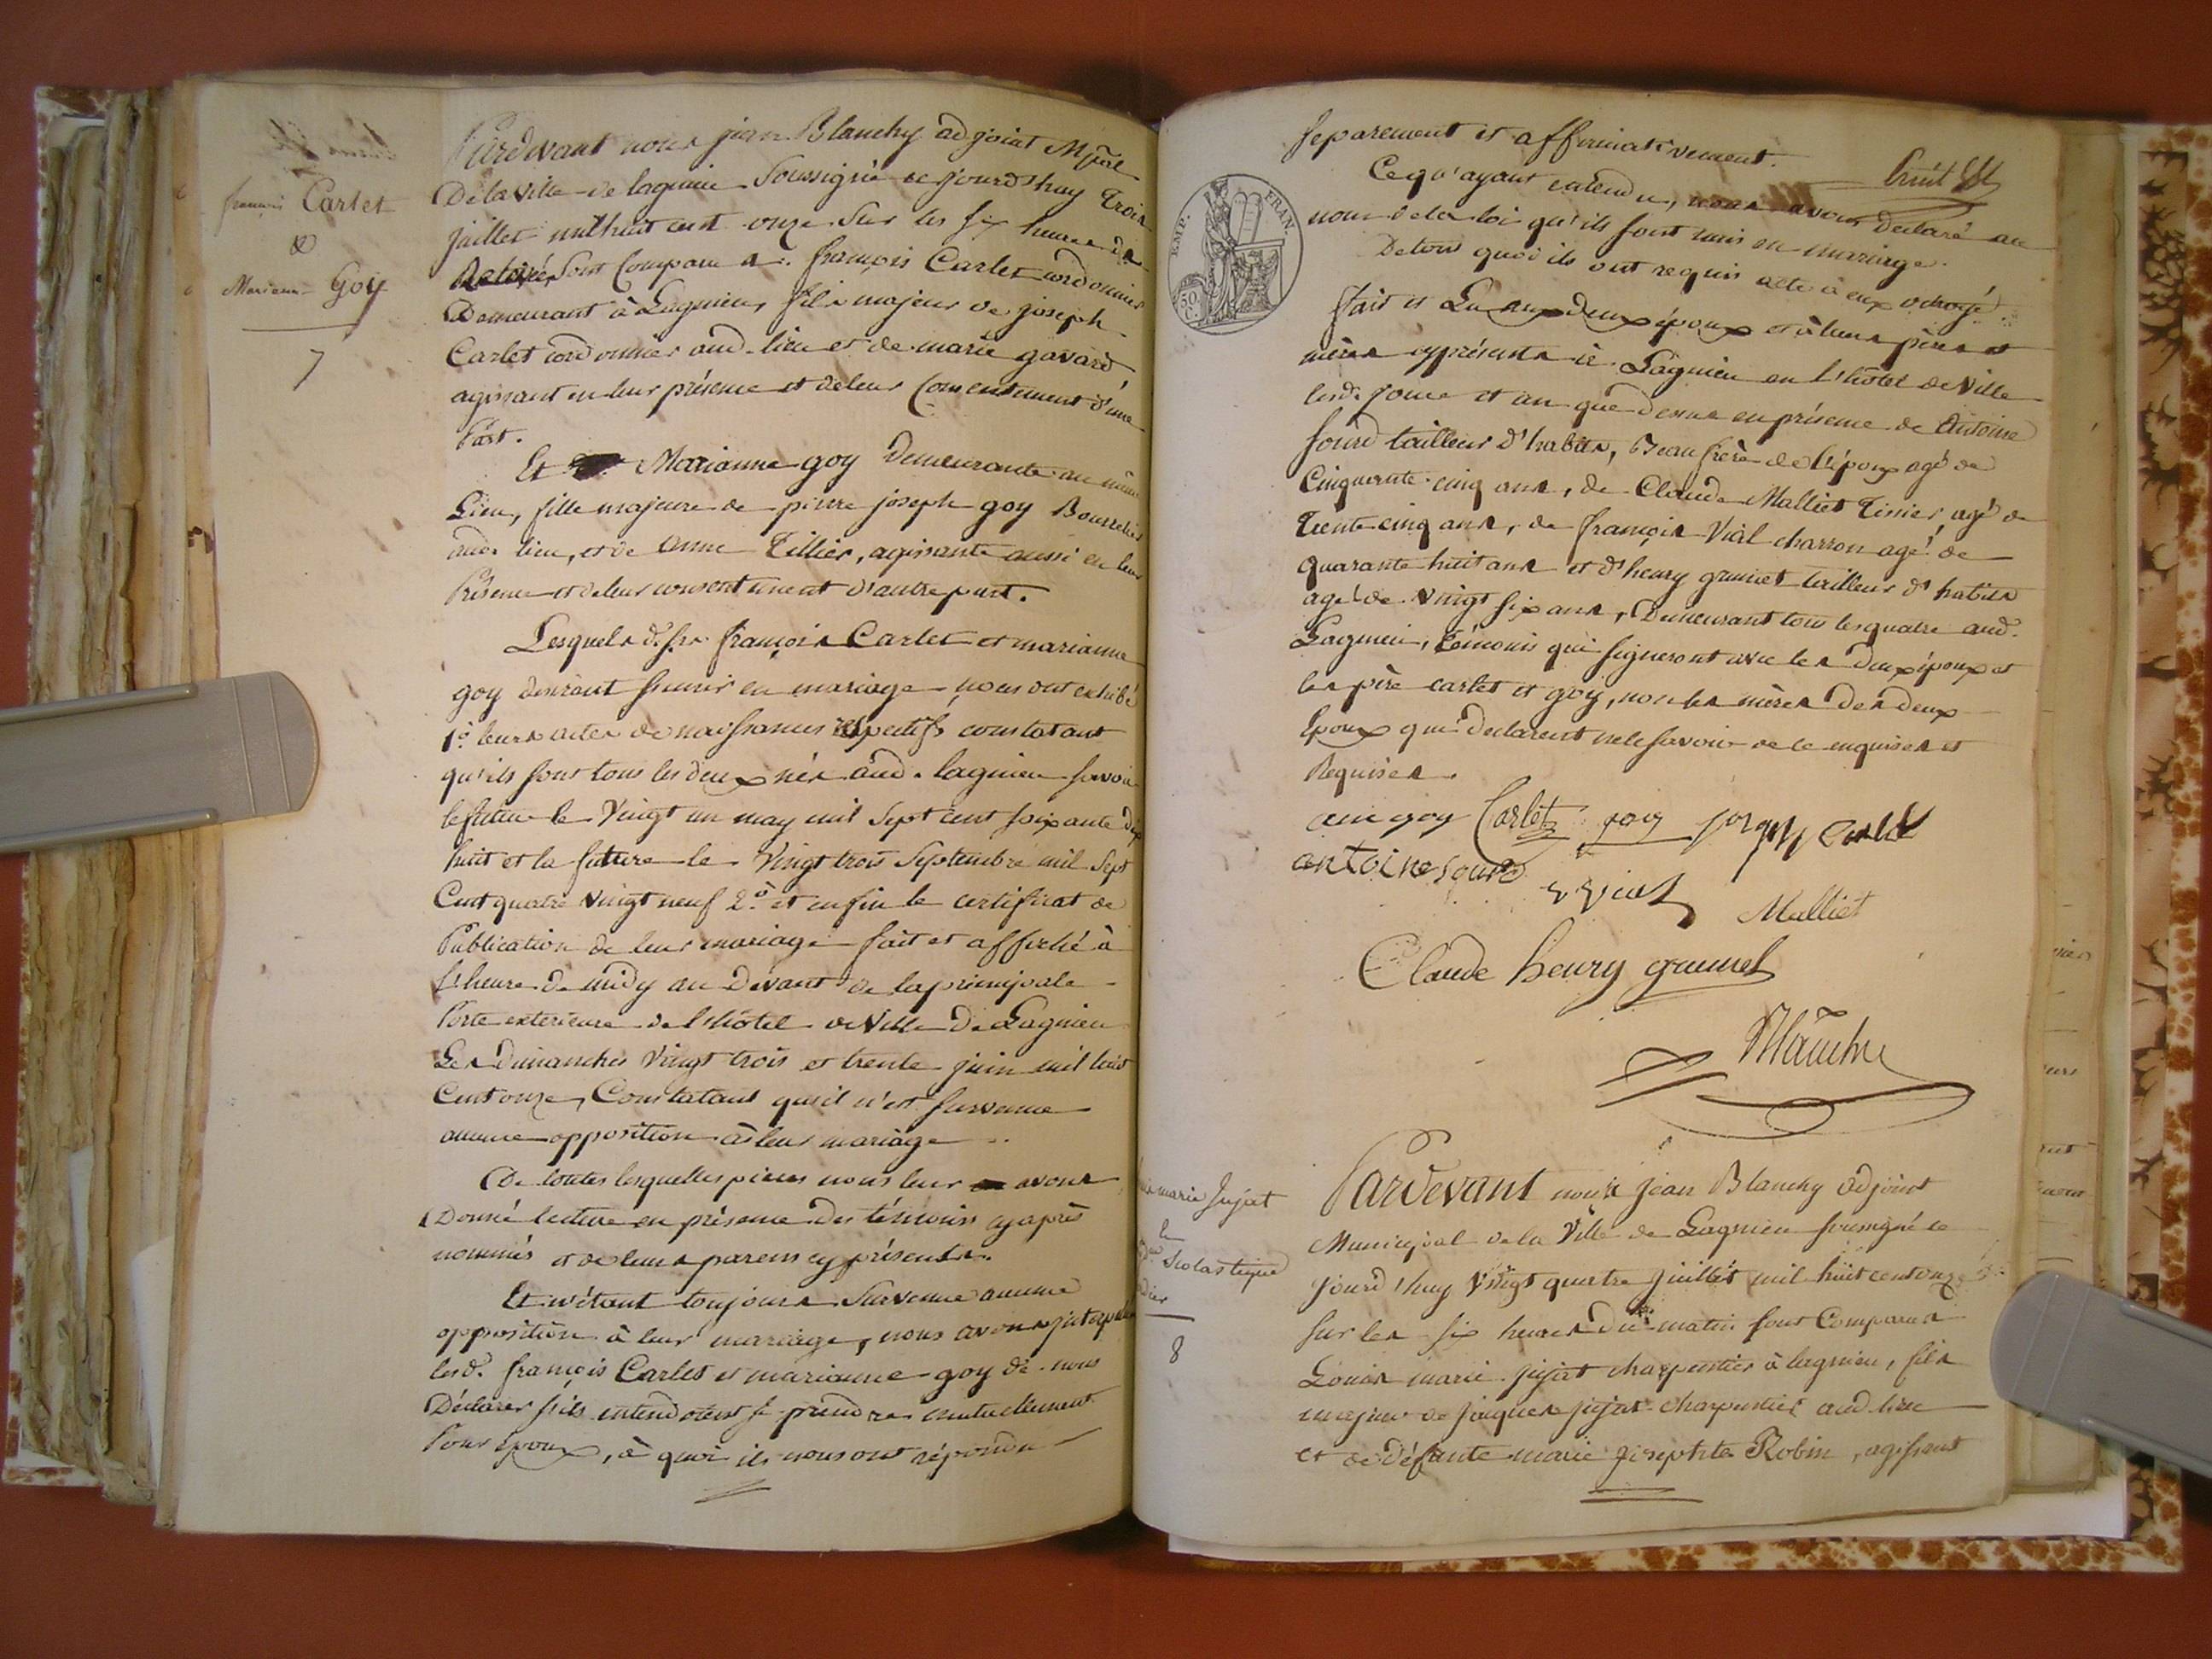 françois Carlet
&
Marianne Goy
7
Pardevant nous jean Blanchy adjoint Mpãl
De la ville de lagnieu Soussigné ce jourd'huy Trois
juillet mil huit cent onze Sur les six heures de
Sont Comparu s. françois Carlet cordonnier
Demeurant à Lagnieu, fils majeur de joseph
Carlet cordonnier aud. lieu et de marie gavard
agissant en leur présence et de leur Consentement d'une
Part.
Et Marianne goy Demeurante au même
Lieu, fille majeure de pierre joseph goy Bourrelier
aud. lieu, et de anne Tillier, agissante aussi en leur
Présence et de leur consentement d'autre part.
Lesquels d. françois Carlet et marianne
goy desirant s'unir en mariage nous ont exhibé
1º leurs actes de naissances respectifs constatant
qu'ils sont tous les deux nés aud. lagnieu savoir
le futur le Vingt un may mil Sept cent soixante dix
huit et la future le Vingt trois Septembre mil Sept
Cent quatre Vingt neuf 2º et enfin le certificat de
Publication de leur mariage fait et affiché à
l'heure de midy au Devant de la principale
Porte exterieure de l'hôtel de Ville De Lagnieu
Les Dimanches Vingt trois et trente juin mil huit
Cent onze, Constatant qu'il n'est survenue
aucune opposition à leur mariage
De toutes lesquelles pieces nous leur avons
Donné lecture en présence Des témoins cy après
nommés et de leurs parens cy présents.
Et n'étant toujours Survenue aucune
opposition à leur mariage, nous avons interpellé
lesd. françois Carlet et marianne goy de nous
Déclarer s'ils entendoient se prendre mutuellement
Pour époux, à quoi ils nous ont répondu
separement et affirmativement.
Ce qu'ayant entendu, nous avons Declaré au
nom de la loi qu'ils sont unis en mariage.
De tous quoi ils ont requis acte à eux octroyé
fait et Lu aux deux époux et à leurs pères et
mères cy présents à Lagnieu en l'hôtel de Ville
lesd. jour et an que dessus en présence de Antoine
sourd tailleur d'habits, Beau frère de l'époux agé de
Cinquante cinq ans, de Claude Malliet Tissier, agé de
Trente cinq ans, de françois Vial charron agé de
quarante huit ans et d'henry grumet tailleur d'habits
agé de vingt six ans, Demeurant tous les quatre aud.
Lagnieu, témoins qui signeront avec les deux époux et
les père carlet et goy, non les mères des deux
Epoux qui declarent ne le savoir de ce enquises et
Requises.
EMP. FRAN.
50 C.
goy Carlet goy joseph carlet
antoine sourd
vial Malliet
Claude henry grumet
Blanchy
marie Jujat
&
Scolastique
8
Pardevant nous jean Blanchy adjoint
Municipal de la Ville de Lagnieu soussigné ce
jourd'huy Vingt quatre juillet mil huit cent onze
sur les six heures du matin sont Comparus
Louis marie jujat charpentier à lagnieu, fils
majeur de jacques jujat charpentier aud. lieu
et de défunte marie josephte Robin, agissant